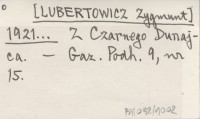 [LUBERTOWICZ Zygmunt]
1921... Z Czarnego Dunaj-
ca. — Gaz. Podh. 9, nr
15.